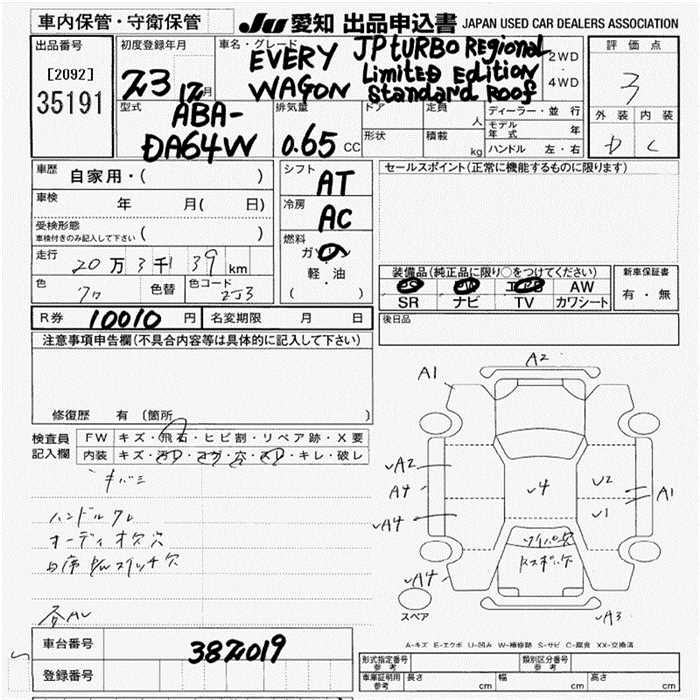 車内保管・守衛保管
JU 愛知 出品申込書 JAPAN USED CAR DEALERS ASSOCIATION
出品番号
[2092]
35191
初度登録年月
23 12月
車名・グレード
EVERY WAGON
JP tURBO REgional
Limited Edition
Standard Roof
2WD
4WD
評価点
3
外装 内装
D C
型式
ABA-
DA64W
排気量
0.65 CC
ドア
定員 人
形状
積載 kg
ディーラー・並行
モデル年式 年
ハンドル 左・右
車歴 自家用・( )
車検 年 月( 日)
受検形態
車検付きのみ記入して下さい ( )
走行 20万3千139km
色 クロ 色替 色コード ZJ3
シフト AT
冷房 AC
燃料
ガソリン
軽・油
( )
セールスポイント(正常に機能するものに限ります)
装備品(純正品に限り○をつけてください)
PS PW エアB AW
SR ナビ TV カワシート
新車保証書
有・無
R券 10010 円 名変期限 月 日
後日品
注意事項申告欄(不具合内容等は具体的に記入して下さい)
修復歴 有 〔箇所 〕
検査員記入欄
FW キズ・飛石・ヒビ割・リペア跡・X要
内装 キズ・汚レ・コゲ・穴・スレ・キレ・破レ
キバミ
ハンドルスレ
オーディオ欠穴
A1
A2
A2
A4
A4
A4
U4
U2
U1
A1
A3
ワイパー欠
スペア
A-キズ E-エクボ U-凹み W-補修跡 S-サビ C-腐食 XX-交換済
車台番号 382019
登録番号
形式指定番号 参考
類別区分番号 参考
車庫証明用 参考 長さ cm 幅 cm 高さ cm